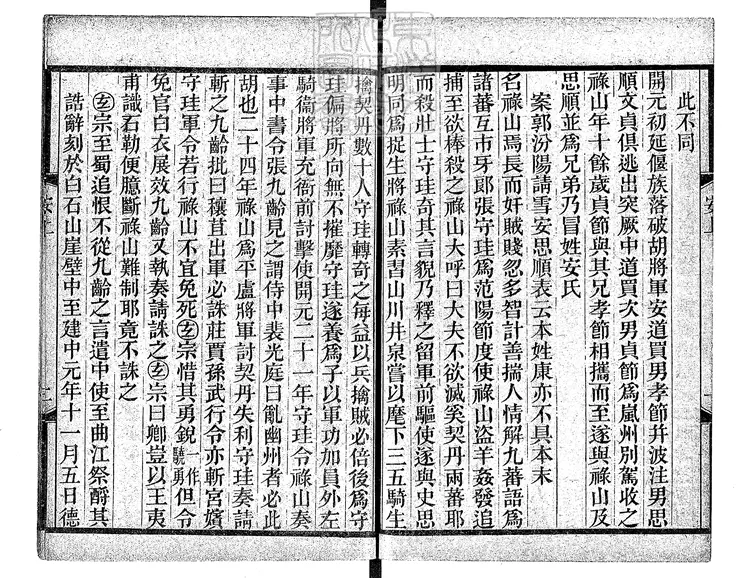 此不同
開元初延偃族落破胡將軍安道買男孝節并波注男思
順文貞俱逃出突厥中道買次男貞節爲嵐州別駕收之
祿山年十餘歲貞節與其兄孝節相攜而至遂與祿山及
思順並爲兄弟乃冒姓安氏
案郭汾陽請雪安思順表云本姓康亦不具本末
名祿山焉長而奸賊賤忍多智計善揣人情解九蕃語爲
諸蕃互市牙郎張守珪爲范陽節度使祿山盜羊姦發追
捕至欲棒殺之祿山大呼曰大夫不欲滅奚契丹兩蕃耶
而殺壯士守珪奇其言貌乃釋之留軍前驅使遂與史思
明同爲捉生將祿山素習山川井泉嘗以麾下三五騎生
擒契丹數十人守珪轉奇之每益以兵擒賊必倍後爲守
珪偏將所向無不摧靡守珪遂養爲子以軍功加員外左
騎衞將軍充衙前討擊使開元二十一年守珪令祿山奏
事中書令張九齡見之謂侍中裴光庭曰亂幽州者必此
胡也二十四年祿山爲平盧將軍討契丹失利守珪奏請
斬之九齡批曰穰苴出軍必誅莊賈孫武行令亦斬宮嬪
守珪軍令若行祿山不宜免死玄宗惜其勇銳一作驍勇但令
免官白衣展效九齡又執奏請誅之玄宗曰卿豈以王夷
甫識石勒便臆斷祿山難制耶竟不誅之
玄宗至蜀追恨不從九齡之言遣中使至曲江祭酹其
誥辭刻於白石山崖壁中至建中元年十一月五日德
安上
安上
二